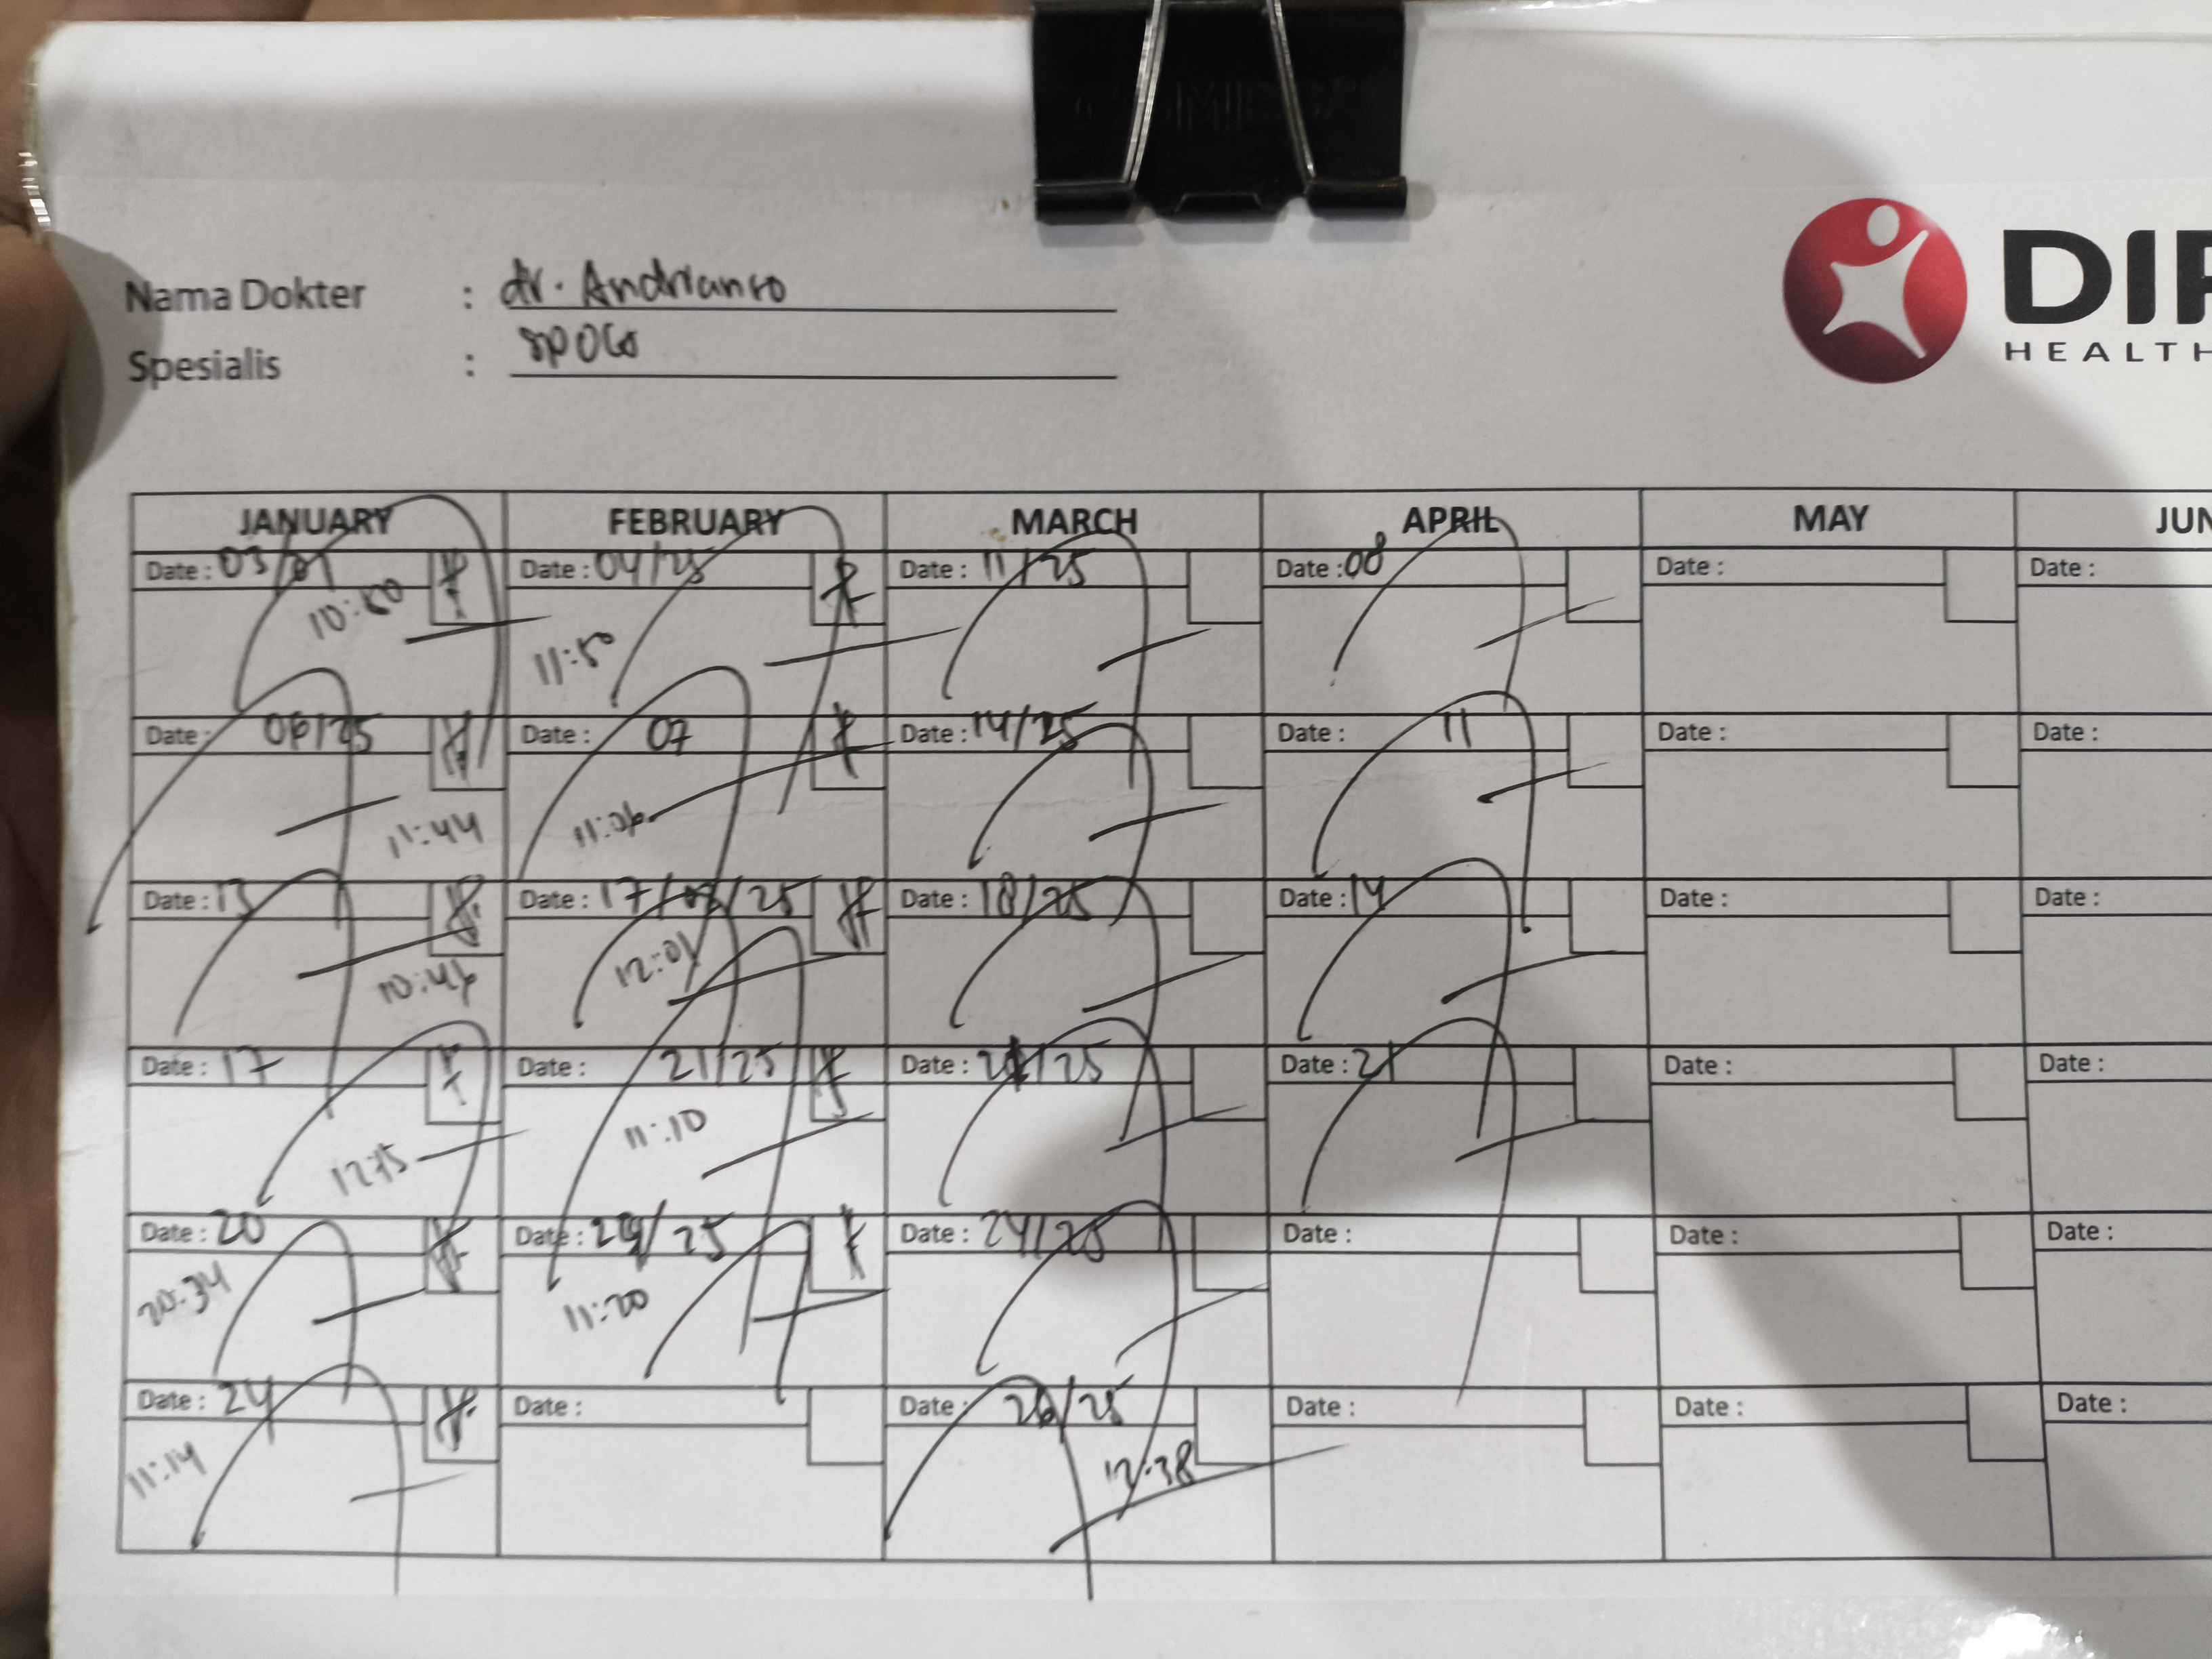 Nama Dokter : dr. Andrianto
Spesialis : SPOG
DIP
HEALTH
JANUARY FEBRUARY MARCH APRIL MAY JUN
Date : 03/01 Date : 04/25 Date : 11/25 Date : 08 Date : Date :
10:50 11:50
Date : 06/25 Date : 07 Date : 14/25 Date : 11 Date : Date :
11:44 11:06
Date : 13 Date : 17/02/25 Date : 18/25 Date : 14 Date : Date :
10:46 12:01
Date : 17 Date : 21/25 Date : 21/25 Date : 21 Date : Date :
12:15 11:10
Date : 20 Date : /25 Date : 24/25 Date : Date : Date :
20:34 11:20
Date : 24 Date : Date : 26/25 Date : Date : Date :
11:14 12:38